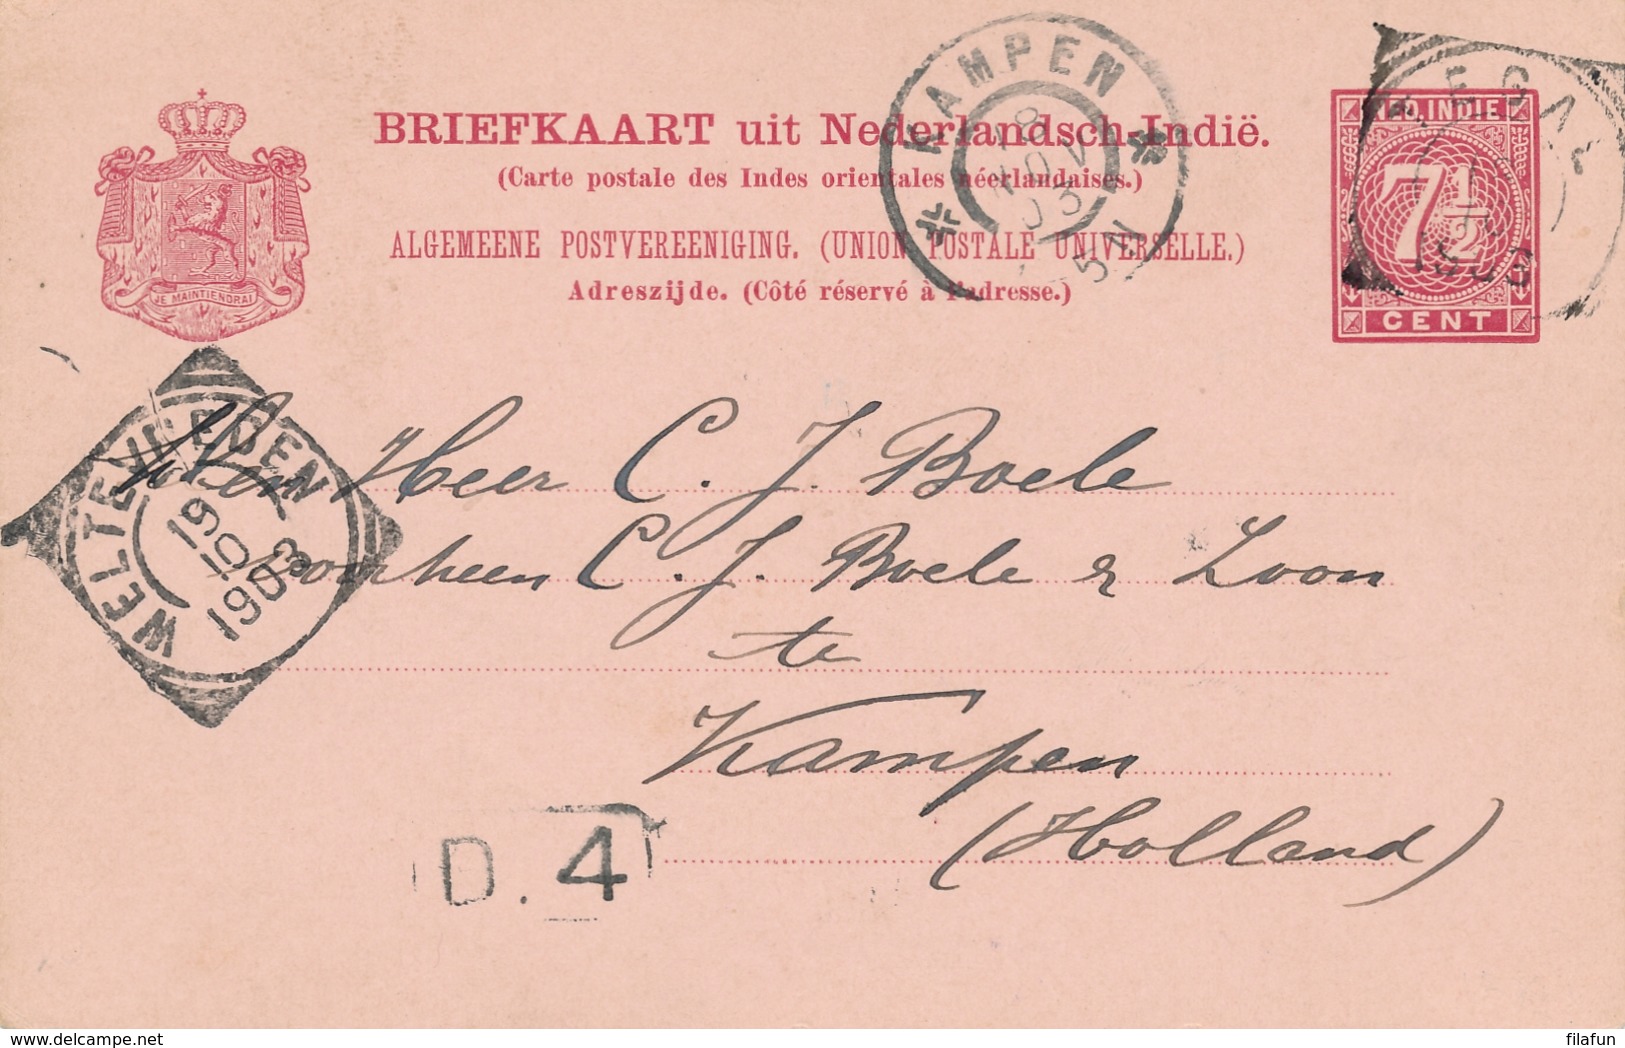 BRIEFKAART uit Nederlandsch-Indië.
(Carte postale des Indes orientales néerlandaises.)
ALGEMEENE POSTVEREENIGING. (UNION POSTALE UNIVERSELLE.)
Adreszijde. (Côté réservé à l'adresse.)
JE MAINTIENDRAI
KAMPEN
18
NOV
03
5 N
NED. INDIE
7½
CENT
TEGAL
1903
WELTEVREDEN
19
10
1903
Den Heer C. J. Boele
C. J. Boele & Zoon
te
Kampen
(Holland)
D. 4
delcampe.net
filafun